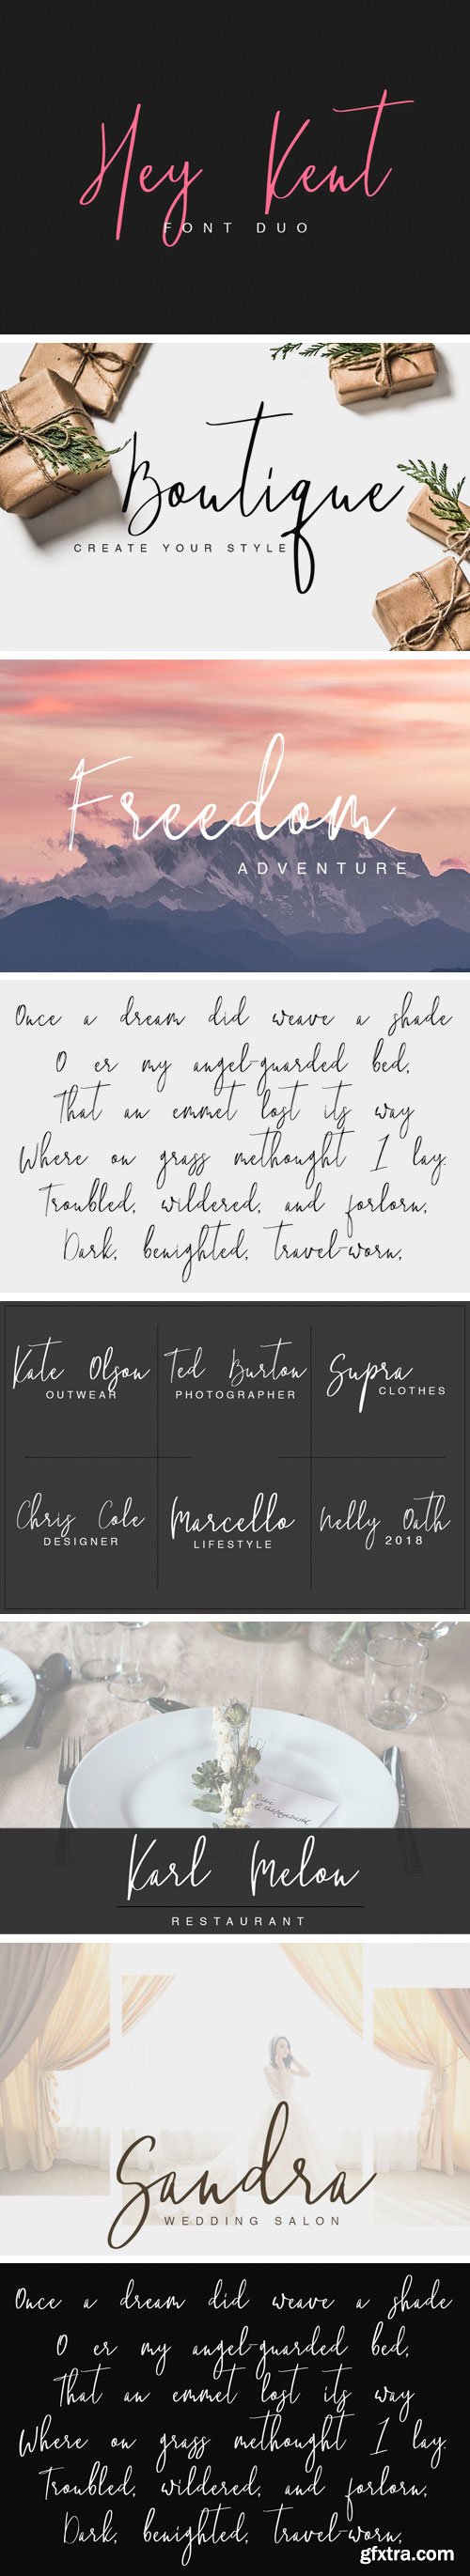 Hey Kent
FONT DUO
Boutique
CREATE YOUR STYLE
Freedom
ADVENTURE
Once a dream did weave a shade
O er my angel-guarded bed,
That an emmet lost its way
Where on grass methought I lay.
Troubled, wildered, and forlorn,
Dark, benighted, travel-worn,
Kate Olson
OUTWEAR
Ted Burton
PHOTOGRAPHER
Supra
CLOTHES
Chris Cole
DESIGNER
Marcello
LIFESTYLE
Nelly Oath
2018
Karl Melon
RESTAURANT
Sandra
WEDDING SALON
Once a dream did weave a shade
O er my angel-guarded bed,
That an emmet lost its way
Where on grass methought I lay.
Troubled, wildered, and forlorn,
Dark, benighted, travel-worn,
gfxtra.com